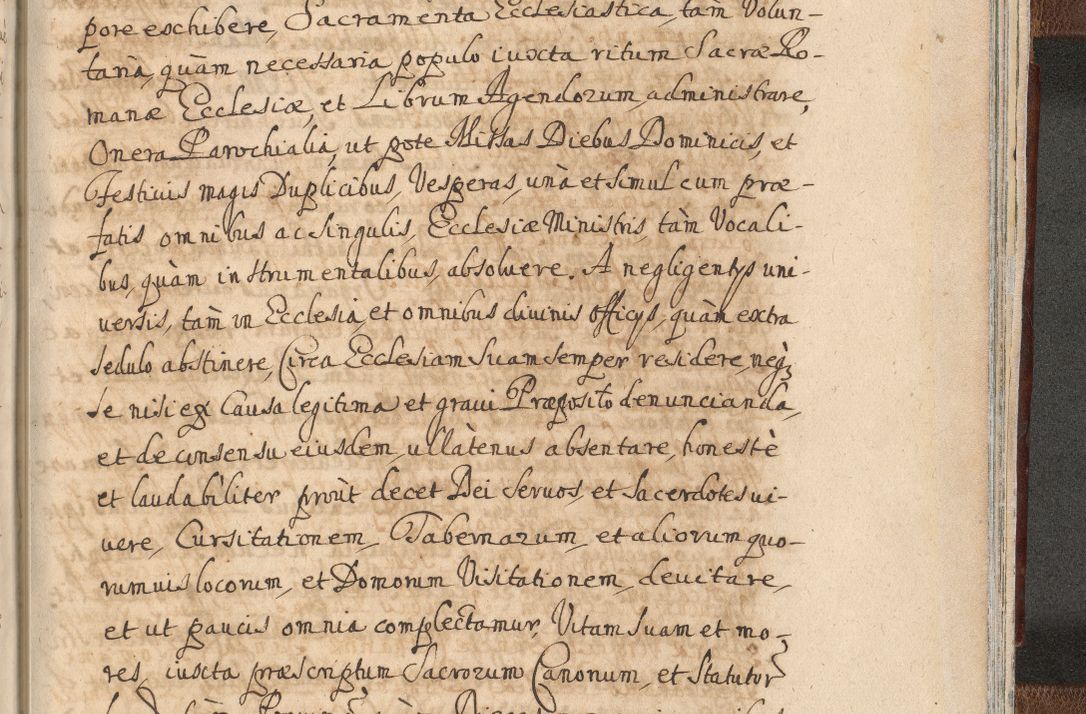 pore exhibere, Sacramenta Ecclesiastica, tam Volun-
taria, quàm necessaria populo iuxta ritum Sacræ Ro-
manæ Ecclesiæ, et Librum Agendorum, administrare,
Onera Parochialia, ut pote Missas Diebus Dominicis, et
Festiuis magis Duplicibus, Vesperas, unà et simul cum præ-
fatis omnibus ac singulis, Ecclesiæ Ministris, tàm Vocali-
bus, quàm instrumentalibus, absoluere. A negligentÿs uni-
versis, tàm in Ecclesia, et omnibus diuinis officÿs, quàm extra
sedulo abstinere, Circa Ecclesiam suam semper residere, neq3
se nisi ex Causa legitima et graui Præposito denuncianda,
et de consensu eiusdem, ullàtenus absentare, honestè
et laudabiliter prout decet Dei seruos, et sacerdotes ui-
uere, Cursitationem, Tabernarum, et aliorum quo-
rumuis locorum, et Domorum Visitationem, deuitare,
et ut paucis omnia complectamur, Vitam suam et mo-
res, iuxta præscriptum Sacrorum Canonum, et Statutor